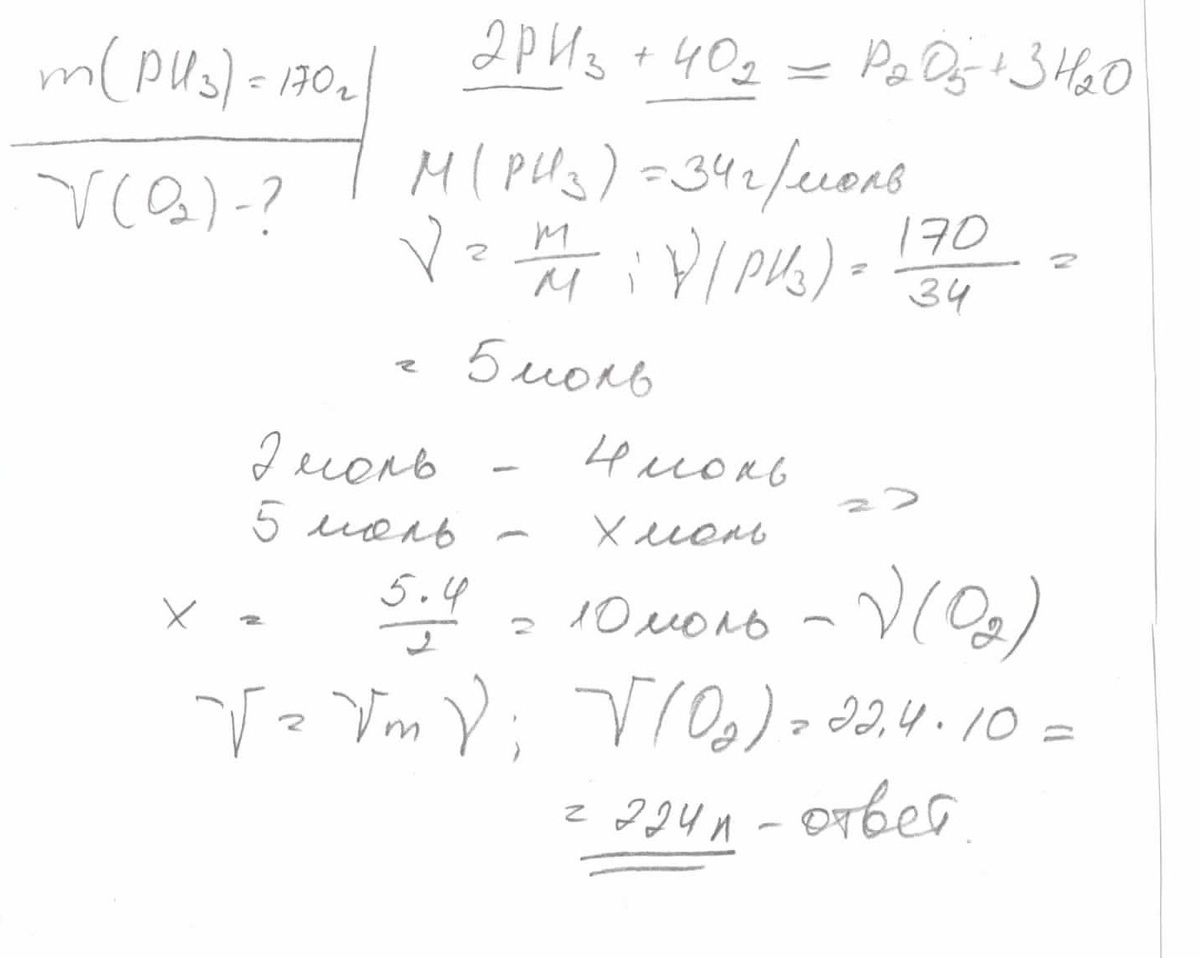 m(PH₃) = 170г
V(O₂) - ?
2PH₃ + 4O₂ = P₂O₅ + 3H₂O
M(PH₃) = 34г/моль
ν = m/M ; ν(PH₃) = 170/34 =
= 5 моль
2 моль - 4 моль
5 моль - x моль =>
x = 5·4/2 = 10 моль - ν(O₂)
V = Vm ν ; V(O₂) = 22,4 · 10 =
= 224 л - ответ.